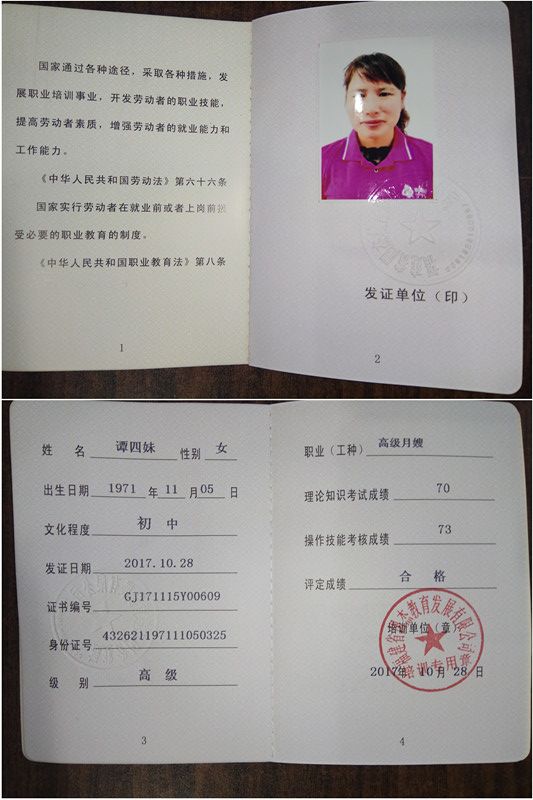 国家通过各种途径，采取各种措施，发
展职业培训事业，开发劳动者的职业技能，
提高劳动者素质，增强劳动者的就业能力和
工作能力。
《中华人民共和国劳动法》第六十六条
国家实行劳动者在就业前或者上岗前接
受必要的职业教育的制度。
《中华人民共和国职业教育法》第八条
1
发证单位（印）
2
姓 名 谭四妹 性别 女
出生日期 1971 年 11 月 05 日
文化程度 初 中
发证日期 2017.10.28
证书编号 GJ171115Y00609
身份证号 432621197111050325
级 别 高 级
3
职业（工种） 高级月嫂
理论知识考试成绩 70
操作技能考核成绩 73
评定成绩 合 格
培训单位（章）
教育发展有限公司
培训专用章
2017年 10 月 28 日
4